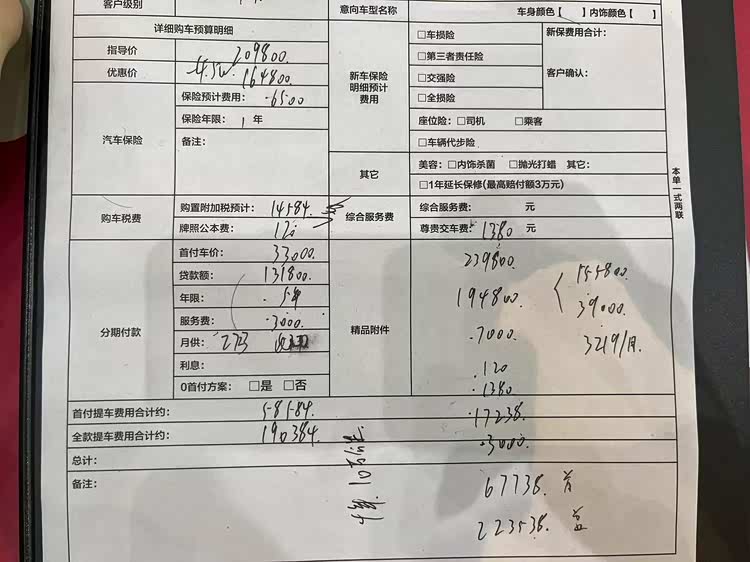 客户级别
意向车型名称 车身颜色【 】内饰颜色【 】
详细购车预算明细
指导价 209800.
优惠价 4.5W 164800.
汽车保险
保险预计费用: 6500
保险年限: 1 年
备注:
新车保险明细预计费用
□车损险
□第三者责任险
□交强险
□全损险
新保费用合计:
客户确认:
座位险: □司机 □乘客
□车辆代步险
其它
美容: □内饰杀菌 □抛光打蜡 其它:
□1年延长保修(最高赔付额3万元)
购车税费
购置附加税预计: 14584.
牌照公本费: 120
综合服务费
综合服务费: 元
尊贵交车费: 1380 元
分期付款
首付车价: 33000.
贷款额: 131800.
年限: 5年
服务费: 3000.
月供: 2723
利息:
0首付方案: □是 □否
精品附件
239800.
194800.
155800.
39000.
3219/月.
7000.
.120
.1380
.17238.
.3000.
首付提车费用合计约: 58584.
全款提车费用合计约: 190384.
总计:
备注:
67738. 首
223538. 全
本单一式两联